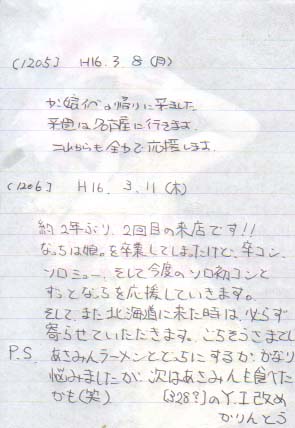 (1205) H16. 3 8 (月)
か娘。イベの帰りに来ました
来週は名古屋に行きます
これからも全力で応援します。
(1206) H16. 3. 11 (木)
約2年ぶり、2回目の来店です!!
なっちは娘。を卒業してしまったけど、卒コン、
ソロミュー、そして今度のソロ初コンと
ずっとなっちを応援していきます。
そして、また北海道に来た時は、必らず
寄らせていただきます。ごちそうさまでし
P.S. あさみんラーメンとどっちにするか、かなり
悩みましたが、次はあさみんも食べた
かも(笑) [328?]のY.I改め
かりんとう